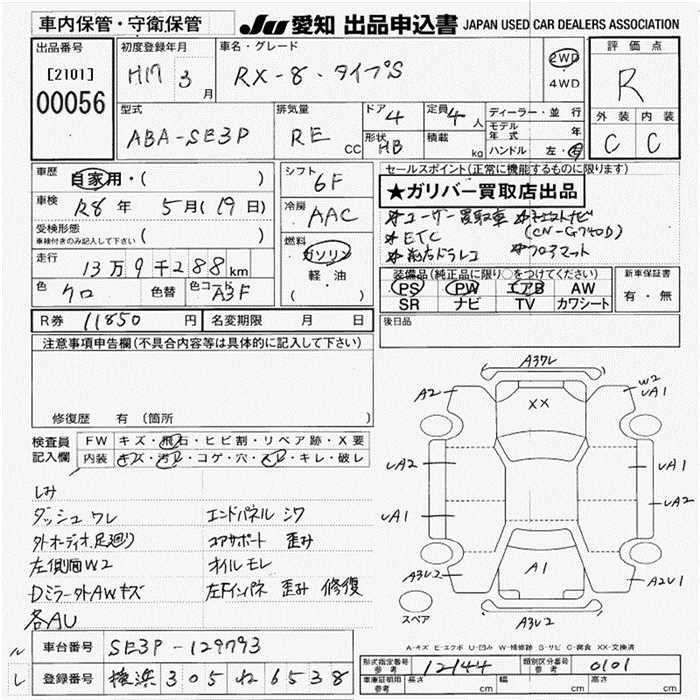 車内保管・守衛保管
JU 愛知 出品申込書 JAPAN USED CAR DEALERS ASSOCIATION
出品番号
[2101]
00056
初度登録年月
H17 3 月
車名・グレード
RX-8・タイプS
2WD
4WD
評価点
R
外装 内装
C C
型式
ABA-SE3P
排気量
RE CC
ドア 4
定員 4 人
形状 HB
積載 kg
ディーラー・並行
モデル年式 年
ハンドル 左・右
車歴
自家用・( )
車検
R8 年 5 月(19日)
受検形態
車検付きのみ記入して下さい ( )
走行
13万9千288km
色 クロ 色替 色コード A3F
シフト
6F
冷房
AAC
燃料
ガソリン
軽・油
( )
セールスポイント(正常に機能するものに限ります)
★ガリバー買取店出品
※ユーザー買取車
(CN-G740D)
※ETC
※フロアマット
※前方ドラレコ
装備品(純正品に限り○をつけてください)
PS PW エアB AW
SR ナビ TV カワシート
新車保証書
有・無
後日品
R券 11850 円 名変期限 月 日
注意事項申告欄(不具合内容等は具体的に記入して下さい)
修復歴 有(箇所 )
検査員記入欄
FW キズ・飛石・ヒビ割・リペア跡・X要
内装 キズ・汚レ・コゲ・穴・スレ・キレ・破レ
しみ
ダッシュ ワレ エンドパネル シワ
外オーディオ.足廻り コアサポート 歪み
左側面W2 オイルモレ
Dミラー外AWキズ 左Fインパネ 歪み 修復
各AU
A3ワレ
A2
XX
W2
UA1
UA2
UA1
UA1
UA2
A3U2
A1
A2U1
A3U2
スペア
A-キズ E-エクボ U-凹み W-補修跡 S-サビ C-腐食 XX-交換済
車台番号 SE3P-129793
登録番号 横浜 305 ね 6538
ル
レ
形式指定番号 参考 12144
類別区分番号 参考 0101
車庫証明用 参考 長さ cm 幅 cm 高さ cm